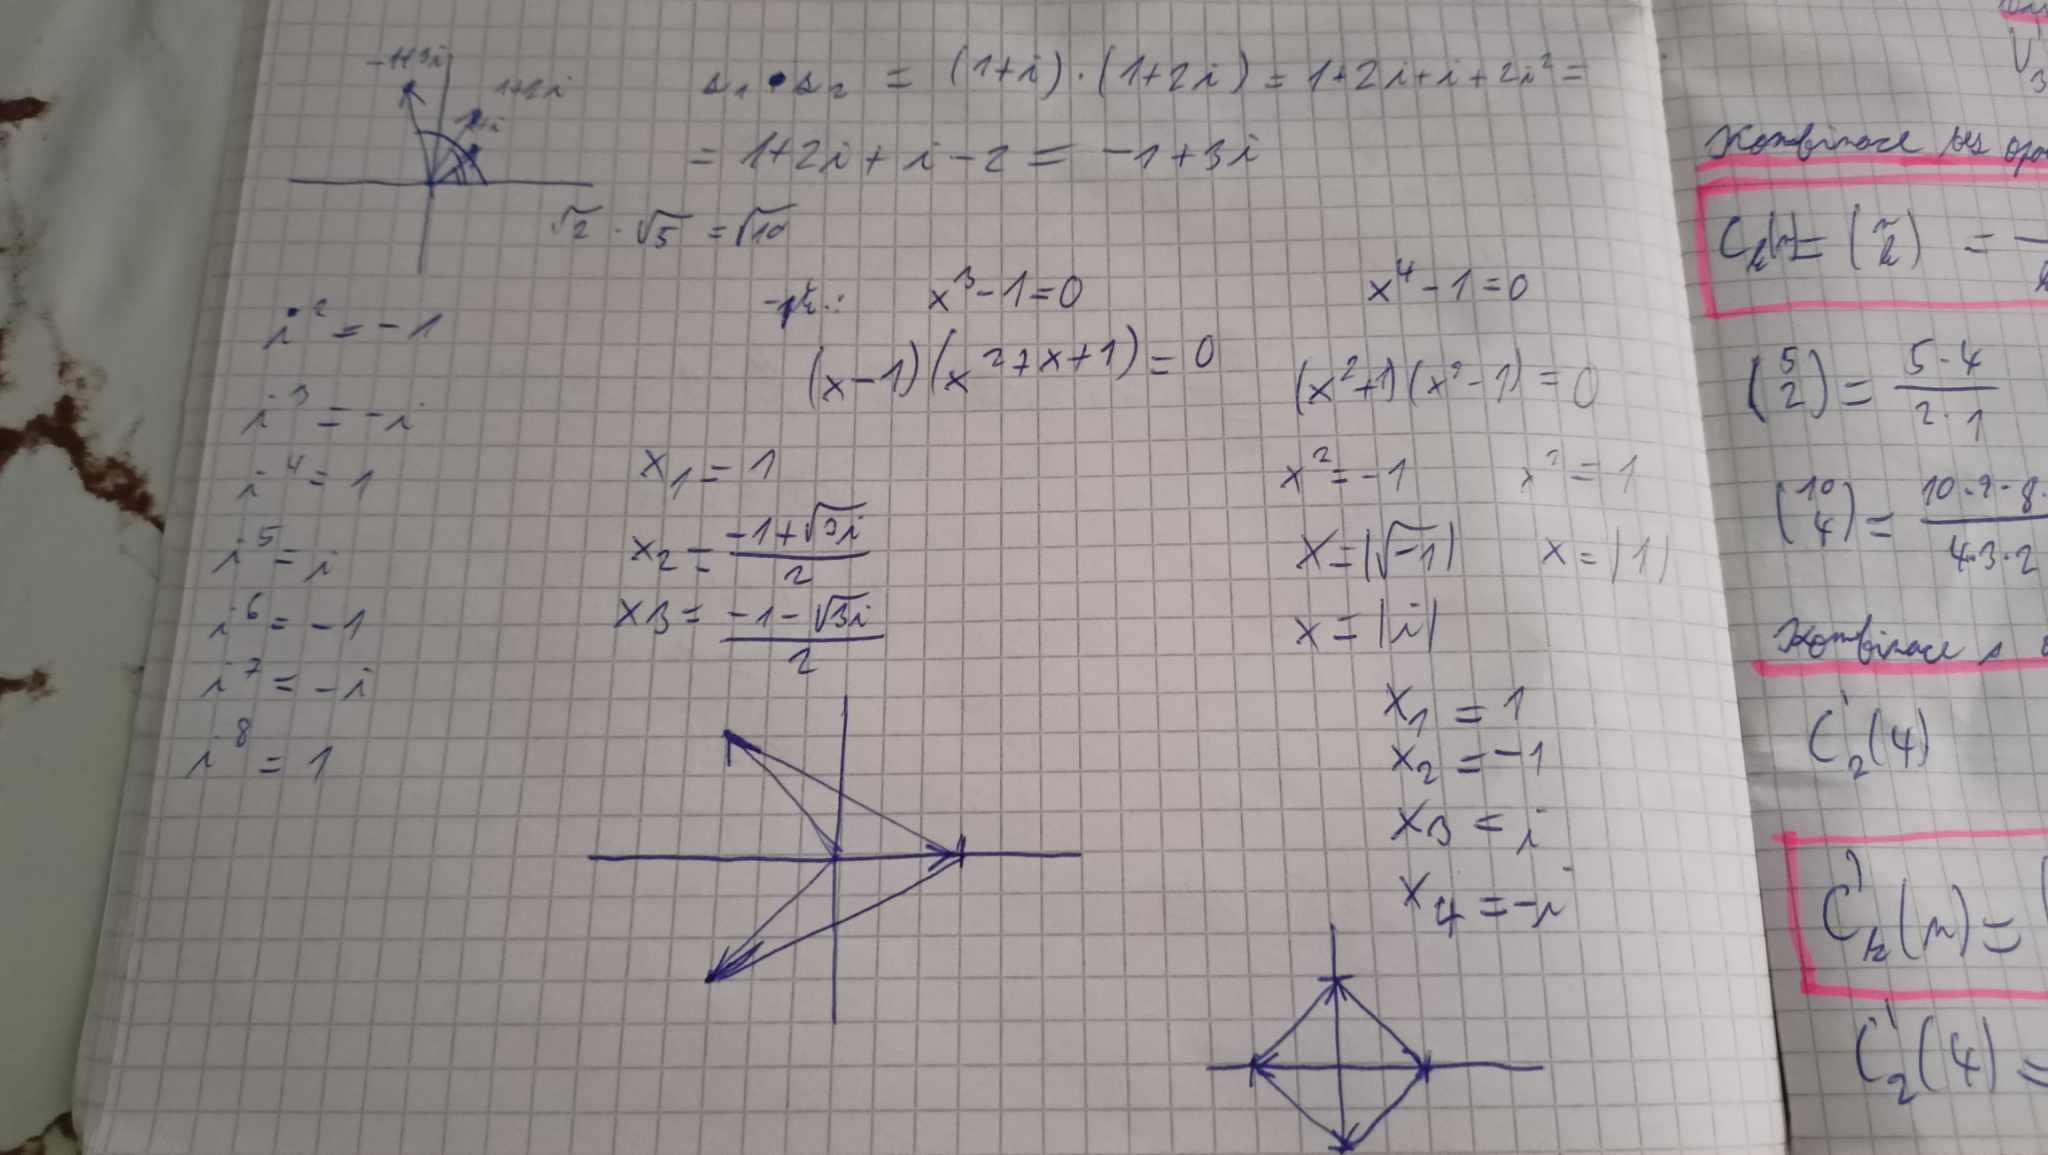 -1+3i
1+2i
1+i
s₁ • s₂ = (1+i)·(1+2i) = 1+2i+i+2i² =
= 1+2i+i-2 = -1+3i
√2 · √5 = √10
i² = -1
i³ = -i
i⁴ = 1
i⁵ = i
i⁶ = -1
i⁷ = -i
i⁸ = 1
-př.: x³-1=0
(x-1)(x²+x+1) = 0
x₁ = 1
x₂ = (-1+√3i)/2
x₃ = (-1-√3i)/2
x⁴-1=0
(x²+1)(x²-1) = 0
x² = -1 x² = 1
x = |√-1| x = |1|
x = |i|
x₁ = 1
x₂ = -1
x₃ = i
x₄ = -i
Kombinace bez
Cₖ(n) = (n k) =
(5 2) = 5·4 / 2·1
(10 4) = 10·9·8· / 4·3·2
Kombinace s
C'₂(4)
C'ₖ(n) = (
C'₂(4) =